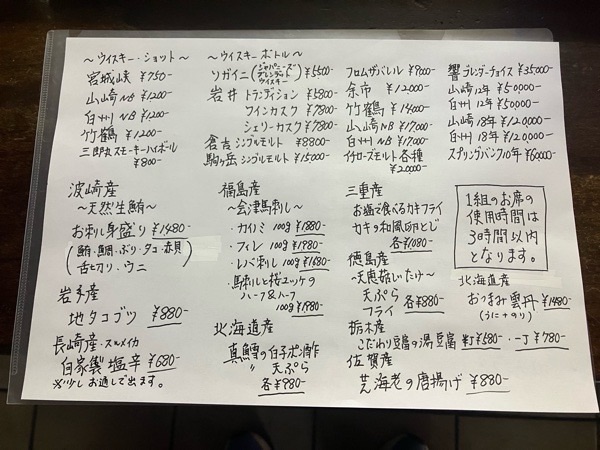 ～ウイスキー・ショット～
宮城峡 ¥750-
山崎NB ¥1200-
白州NB ¥1200-
竹鶴 ¥1200-
三郎丸スモーキーハイボール
¥800-
～ウイスキーボトル～
ソガイニ(ジャパニーズ ブレンデッド ウイスキー) ¥5500-
岩井 トラディション ¥5800-
ワインカスク ¥7800-
シェリーカスク ¥7800-
倉吉 シングルモルト ¥8800
駒ヶ岳 シングルモルト ¥15,000-
フロムザバレル ¥9000-
余市 ¥12,000-
竹鶴 ¥14000-
山崎NB ¥17,000-
白州NB ¥17,000-
イチローズモルト各種
¥20000-
響ブレンダーチョイス ¥35000-
山崎12年 ¥50,000-
白州12年 ¥50,000-
山崎18年 ¥120,000-
白州18年 ¥120,000-
スプリングバンク10年 ¥60000-
波崎産
～天然生鮪～
お刺し身盛り ¥1480-
(鮪・鯛・ぶり・タコ・赤貝
舌切り・ウニ)
岩手産
地タコブツ ¥880-
長崎産・スルメイカ
自家製 塩辛 ¥680-
※少しお通しで出ます。
福島産
～会津馬刺し～
・カイノミ 100g ¥1880-
・フィレ 100g ¥1980-
・レバ刺し 100g ¥1680-
・馬刺しと桜ユッケの
ハーフ&ハーフ
100g ¥1980-
北海道産
真鱈の白子ポン酢
〃 天ぷら
各¥980-
三重産
お塩で食べるカキフライ
カキの和風卵とじ
各¥1080-
徳島産
～天恵菇しいたけ～
天ぷら
フライ 各¥880-
栃木産
こだわり豆腐の湯豆腐 半丁¥580-・一丁¥780-
佐賀産
芝海老の唐揚げ ¥880-
1組のお席の
使用時間は
3時間以内
となります。
北海道産
おつまみ雲丹 ¥1480-
(うに+のり)